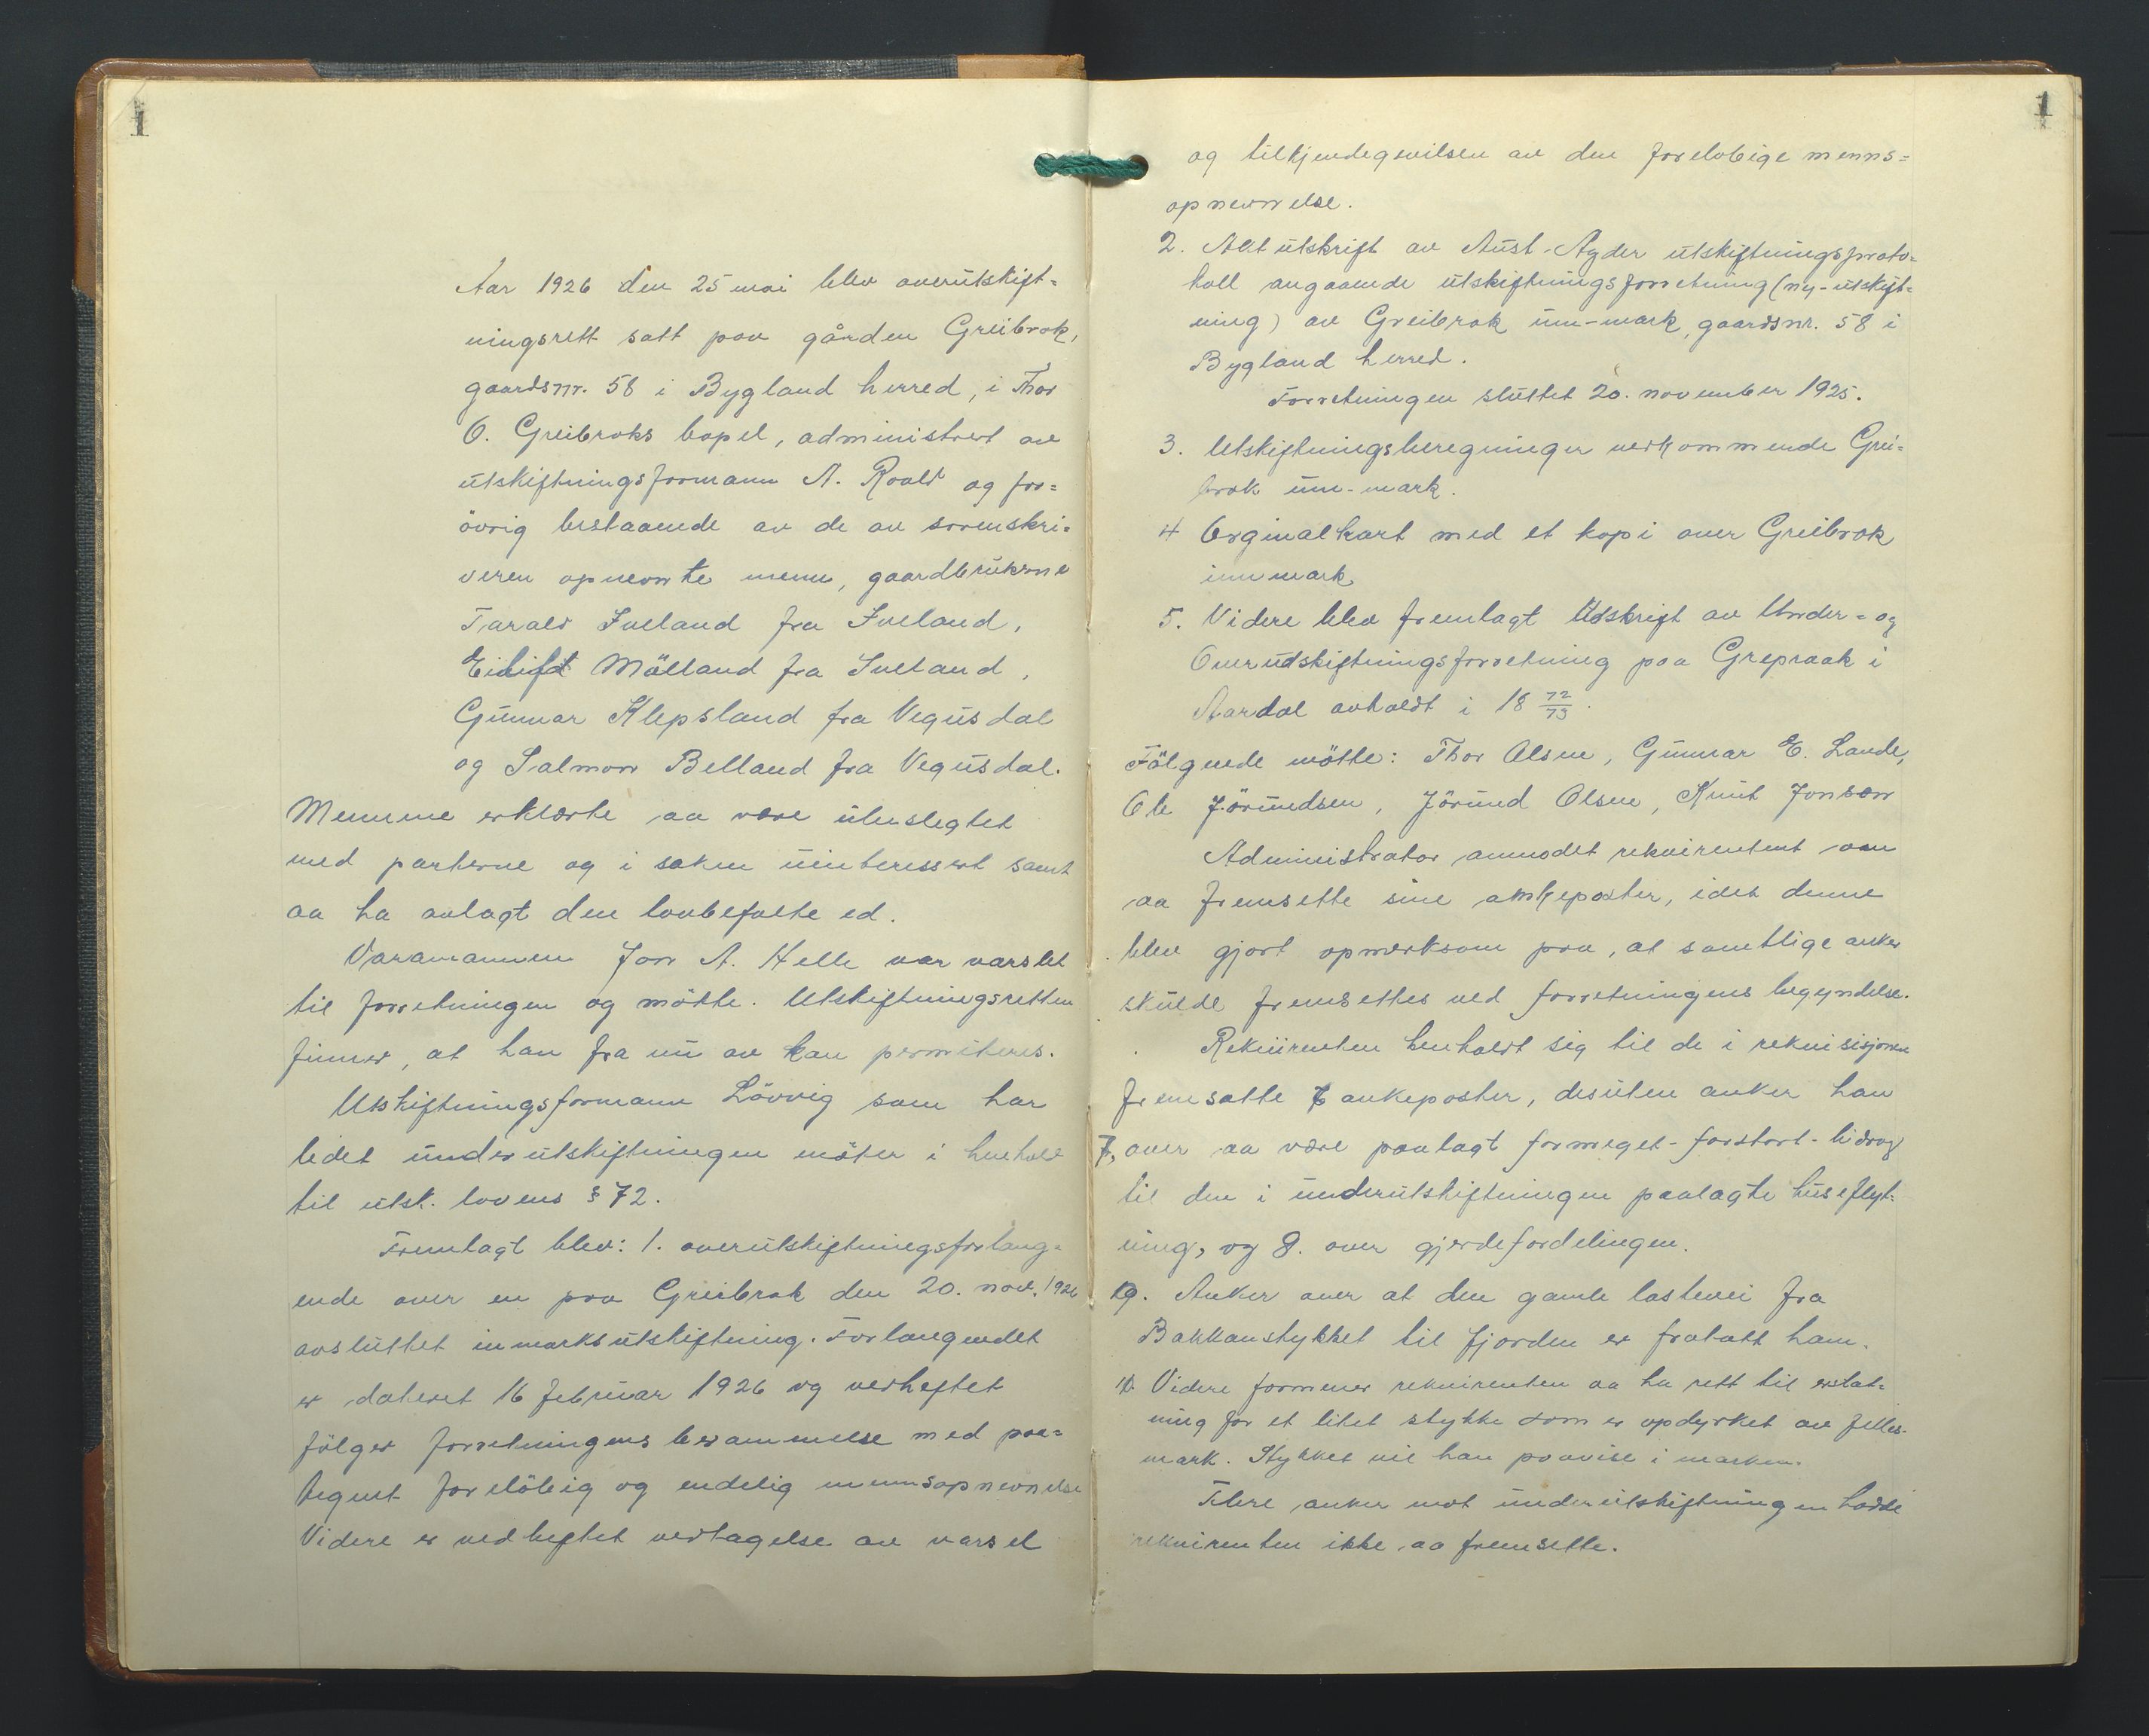 1
Aar 1926 den 25 mai blev overutskift-
ningsrett satt paa gården Greibrok,
gaardsnr. 58 i Bygland herred, i Thor
O. Greibroks bopel, administrert av
utskiftningsformann A. Roald og for-
övrig bestaaende av de av sorenskri-
veren opnevnte menn, gaardbrukerne
Tarald Iveland fra Iveland,
Eilift Mölland fra Iveland,
Gunnar Klepsland fra Vegusdal
og Salmon Belland fra Vegusdal.
Mennene erklærte aa være ubeslegtet
med parterne og i saken uinteressert samt
aa ha avlagt den lovbefalte ed.
Varamannen Jon A. Helle var varslet
til forretningen og mötte. Utskiftningsretten
finner, at han fra nu av kan permiteres.
Utskiftningsformann Lövvig som har
ledet underutskiftningen möter i henhold
til utsk. lovens § 72.
Fremlagt blev: 1. overutskiftningsforlang-
ende over en paa Greibrok den 20. nov. 1926
avsluttet inmarksutskiftning. Forlangendet
er datert 16 februar 1926 og vedheftet
fölger forretningens berammelse med paa-
tegnet forelöbig og endelig mennsopnevnelse
Videre er vedheftet vedtagelse av varsel
1
og tilkjendegivelsen av den forelobige menns=
opnevnelse.
2. Akt utskrift av Aust-Agder utskiftningsproto-
koll angaaende utskiftningsforretning (ny-utskift-
ning) av Greibrok inn-mark, gaardsnr. 58 i
Bygland herred.
Forretningen sluttet 20. november 1925.
3. Utskiftningsberegninger vedkommende Grei-
brok inn-mark.
4 Orginalkart med et kopi over Greibrok
innmark
5. Videre blev fremlagt Udskrift av Under- og
Overudskiftningsforretning paa Grepraak i
Aardal avholdt i 18 72/73.
Fölgende mötte: Thor Olsen, Gunnar E. Lande,
Ole Jörundsen, Jörund Olsen, Knut Jonson
Administrator anmodet rekvirentent om
aa fremsette sine ankeposter, idet denne
blev gjort opmerksom paa, at samtlige anker
skulde fremsettes ved forretningens begyndelse.
Rekvirenten henholdt sig til de i rekvisisjonen
fremsatte 6 ankeposter, desuten anker han
7, over aa være paalagt formeget - forstort - bidrag
til den i underutskiftningen paalagte huseflyt-
ning, og 8. over gjerdefordelingen.
9. Anker over at den gamle lastevei fra
Bakkanstykket til fjorden er fratatt ham.
10. Videre formener rekvirenten aa ha rett til erstat-
ning for et litet stykke som er opdyrket av felles-
mark. Stykket vil han paavise i marken.
Flere anker mot underutskiftningen hadde
rekvirenten ikke aa fremsette.